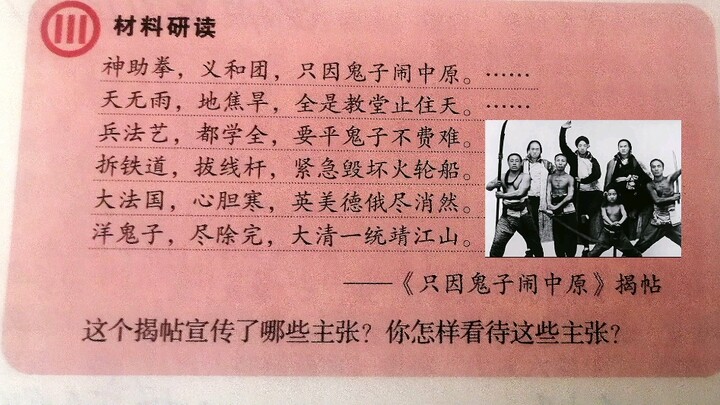 材料研读
神助拳，义和团，只因鬼子闹中原。……
天无雨，地焦旱，全是教堂止住天。……
兵法艺，都学全，要平鬼子不费难。
拆铁道，拔线杆，紧急毁坏火轮船。
大法国，心胆寒，英美德俄尽消然。
洋鬼子，尽除完，大清一统靖江山。
——《只因鬼子闹中原》揭帖
这个揭帖宣传了哪些主张？你怎样看待这些主张？